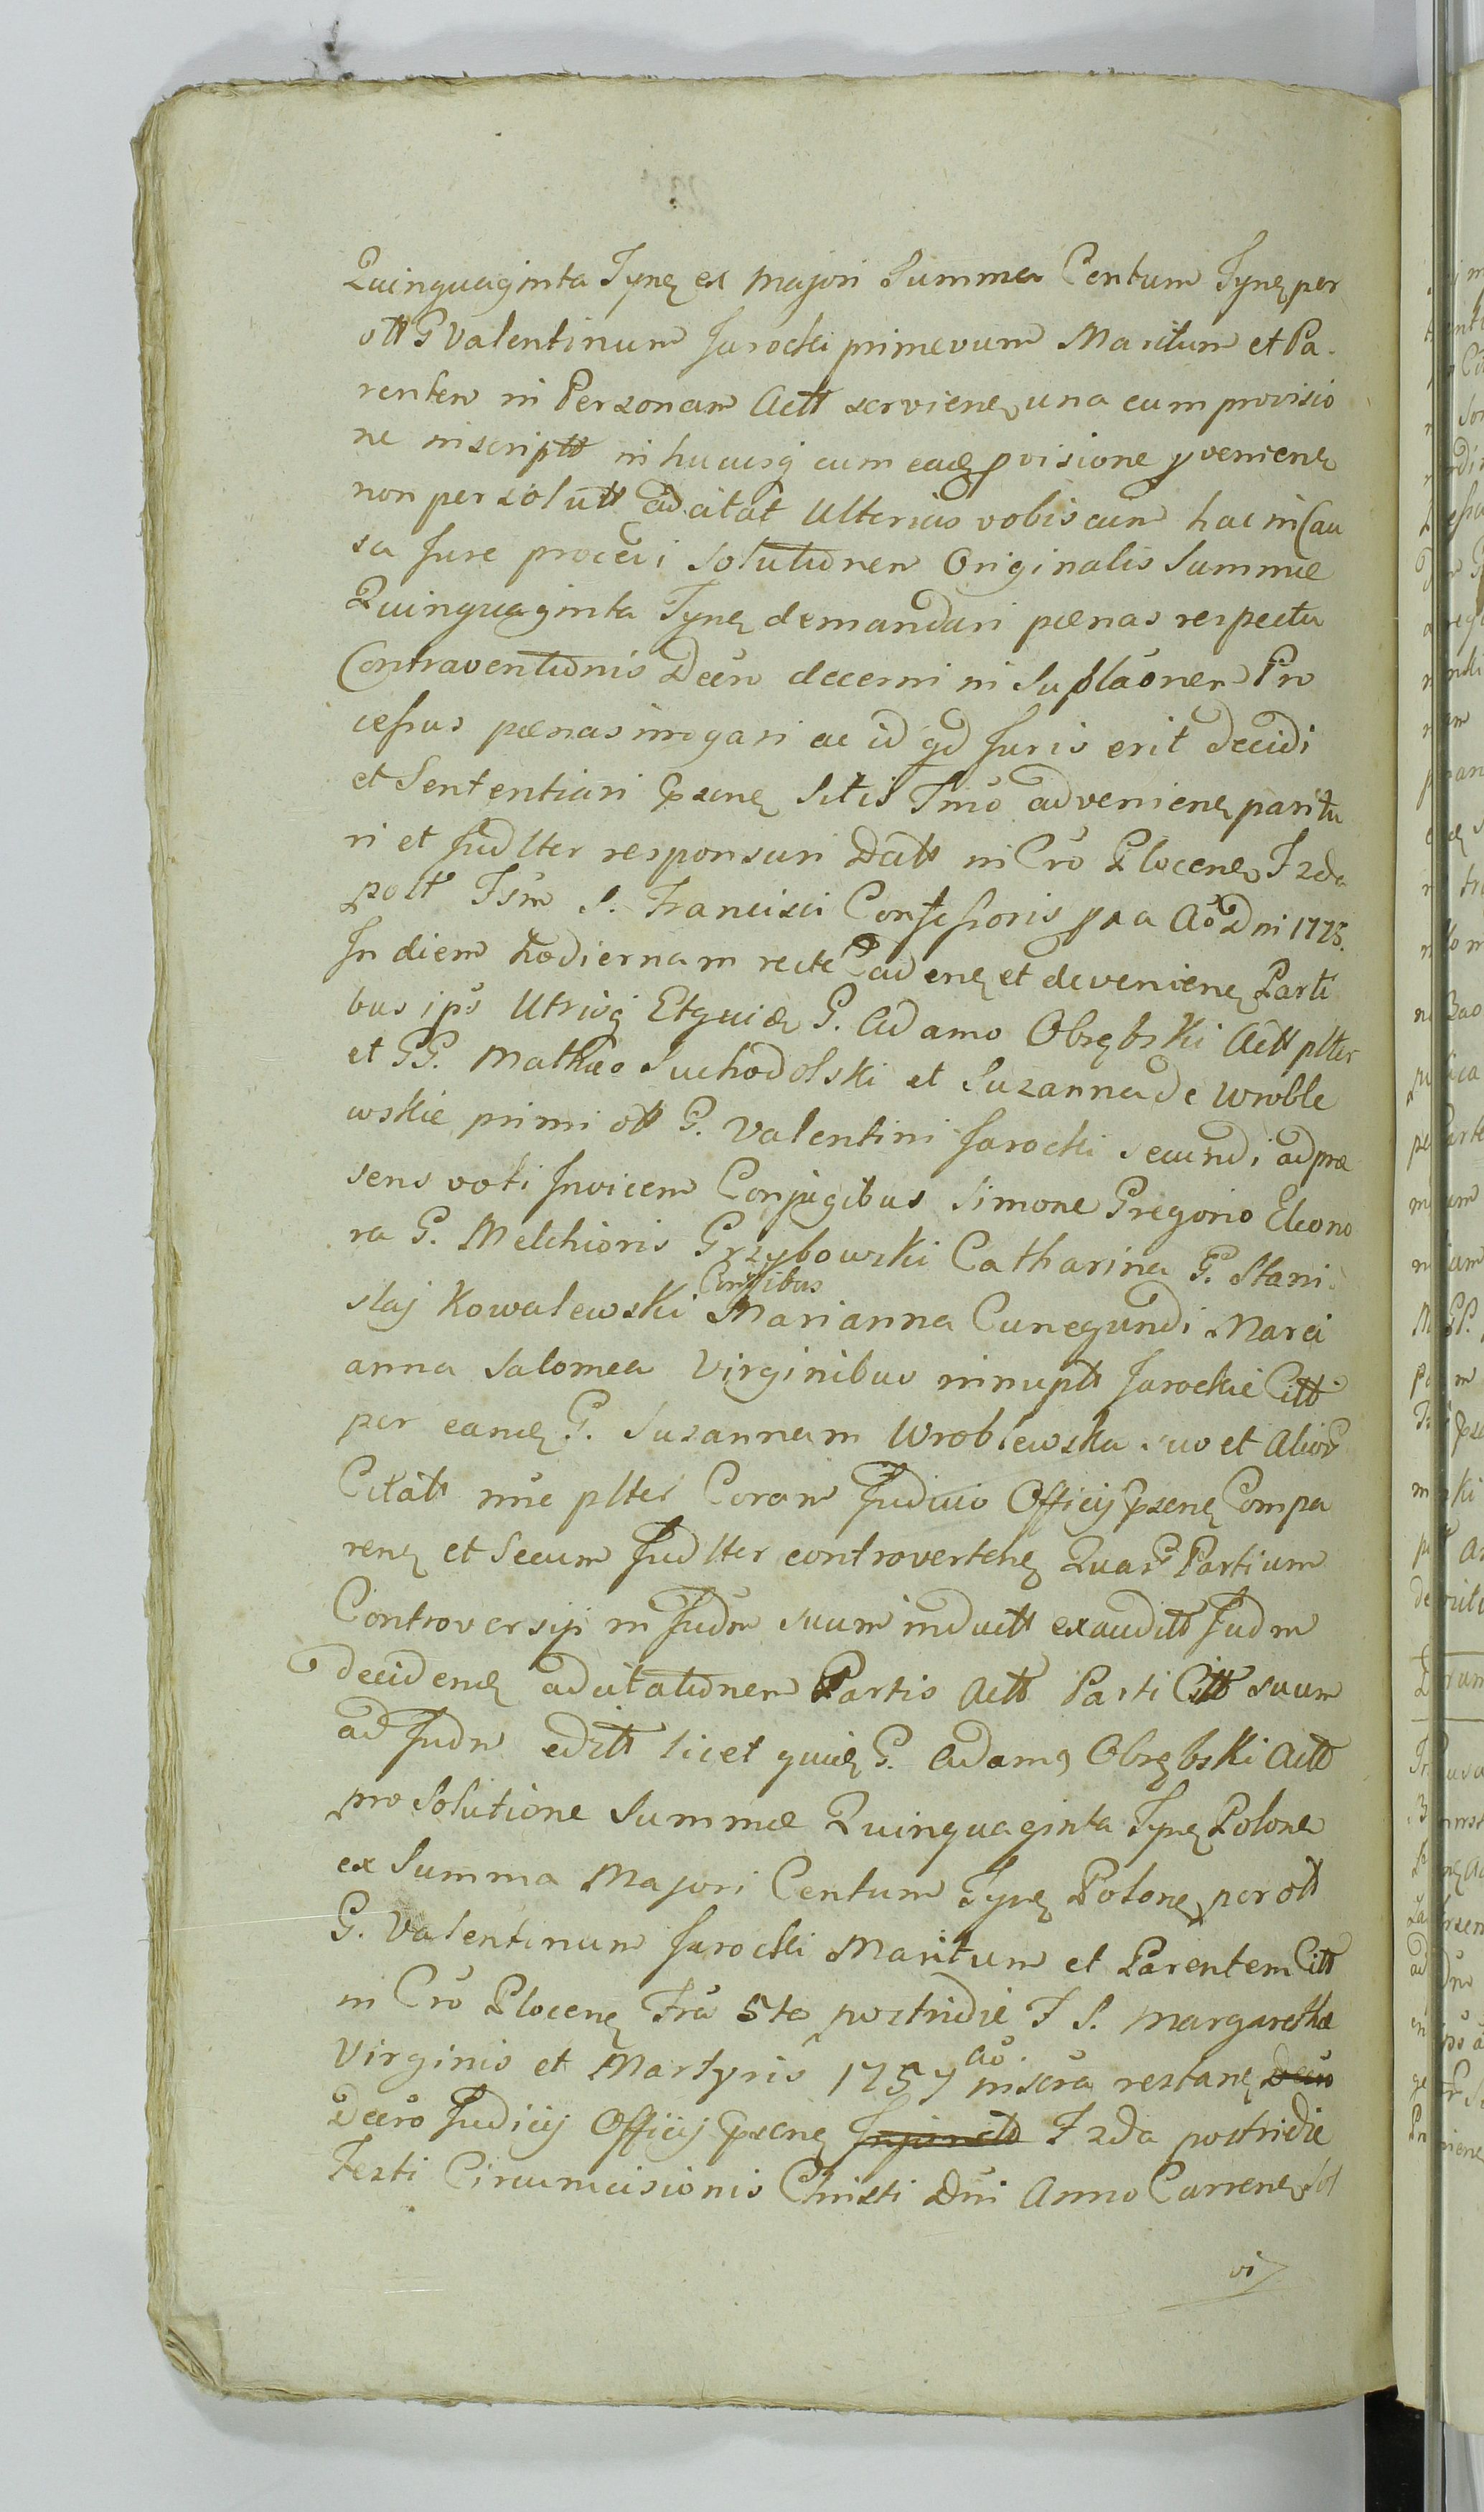 Quinquaginta Tynf ex majori Summa Centum Tynf per
ott G Valentinum Jarocki primevum Maritum et Pa-
rentem in Personam Actt servienē una cum provisio
ne inscriptt in hucusq cum eadē pvisione pveniene
non persolutt adcitat Ulterius vobiscum hac in Cau
sa Jure procedi Solutionem Originalis Summæ
Quinquaginta Tynf demandari pœnas respectu
Contraventionis Decn decerni in Suplāonem Pro
cessus pœnas irrogari ac id qd Juris erit decidi
et Sententiari Pzene Sitis Tmō advenienē paritu
ri et Judlter responsuri Datt in Crō Plocenē F 2da
post Fsm S. Francisci Confessoris pxa Aō Dni 1775.
In diem hodiernam recte Cadenē et devenienē Parti
bus ips Utrisq Etquidē G. Adamo Obrębski Actt plter
et GG. Mathæo Suchodolski et Suzanna de Wroble
wskie primi ott G. Valentini Jarocki secundi ad præ
sens voti Invicem Conjugibus Simone Gregorio Eleono
ra G. Melchioris Grzybowski Catharina G. Stani
slaj Kowalewski Conjibus Marianna Cunegundi Marci
anna Salomea Virginibus innuptt Jarockie Citt
per eandē G. Suzannam Wroblewska suo et Alior
Citatt nīe plter Coram Judicio Officij Pzenē Compa
renē et Secum Judlter controvertenē Quar Partium
Controversijs in Judm suum inductt exauditt Judm
decidendē adcitationem Partis Actt Parti Citt suum
ad Judm editt licet quidē G. Adamq Obrębski Actt
pro Solutione Summæ Quinquaginta Tynf Polonē
ex Summa Majori Centum Tynf Polonē per ott
G. Valentinum Jarocki Maritum et Parentem Citt
in Crō Plocenē Fra 5ta postridie F S. Margarethæ
Virginis et Martyris 1757 aō. inscra restanē Decro
Decro Judicij Officij Pzenē Injunctt F 2da postridie
Festi Circumcisionis Christi Dni Anno Currenē Sol
vi